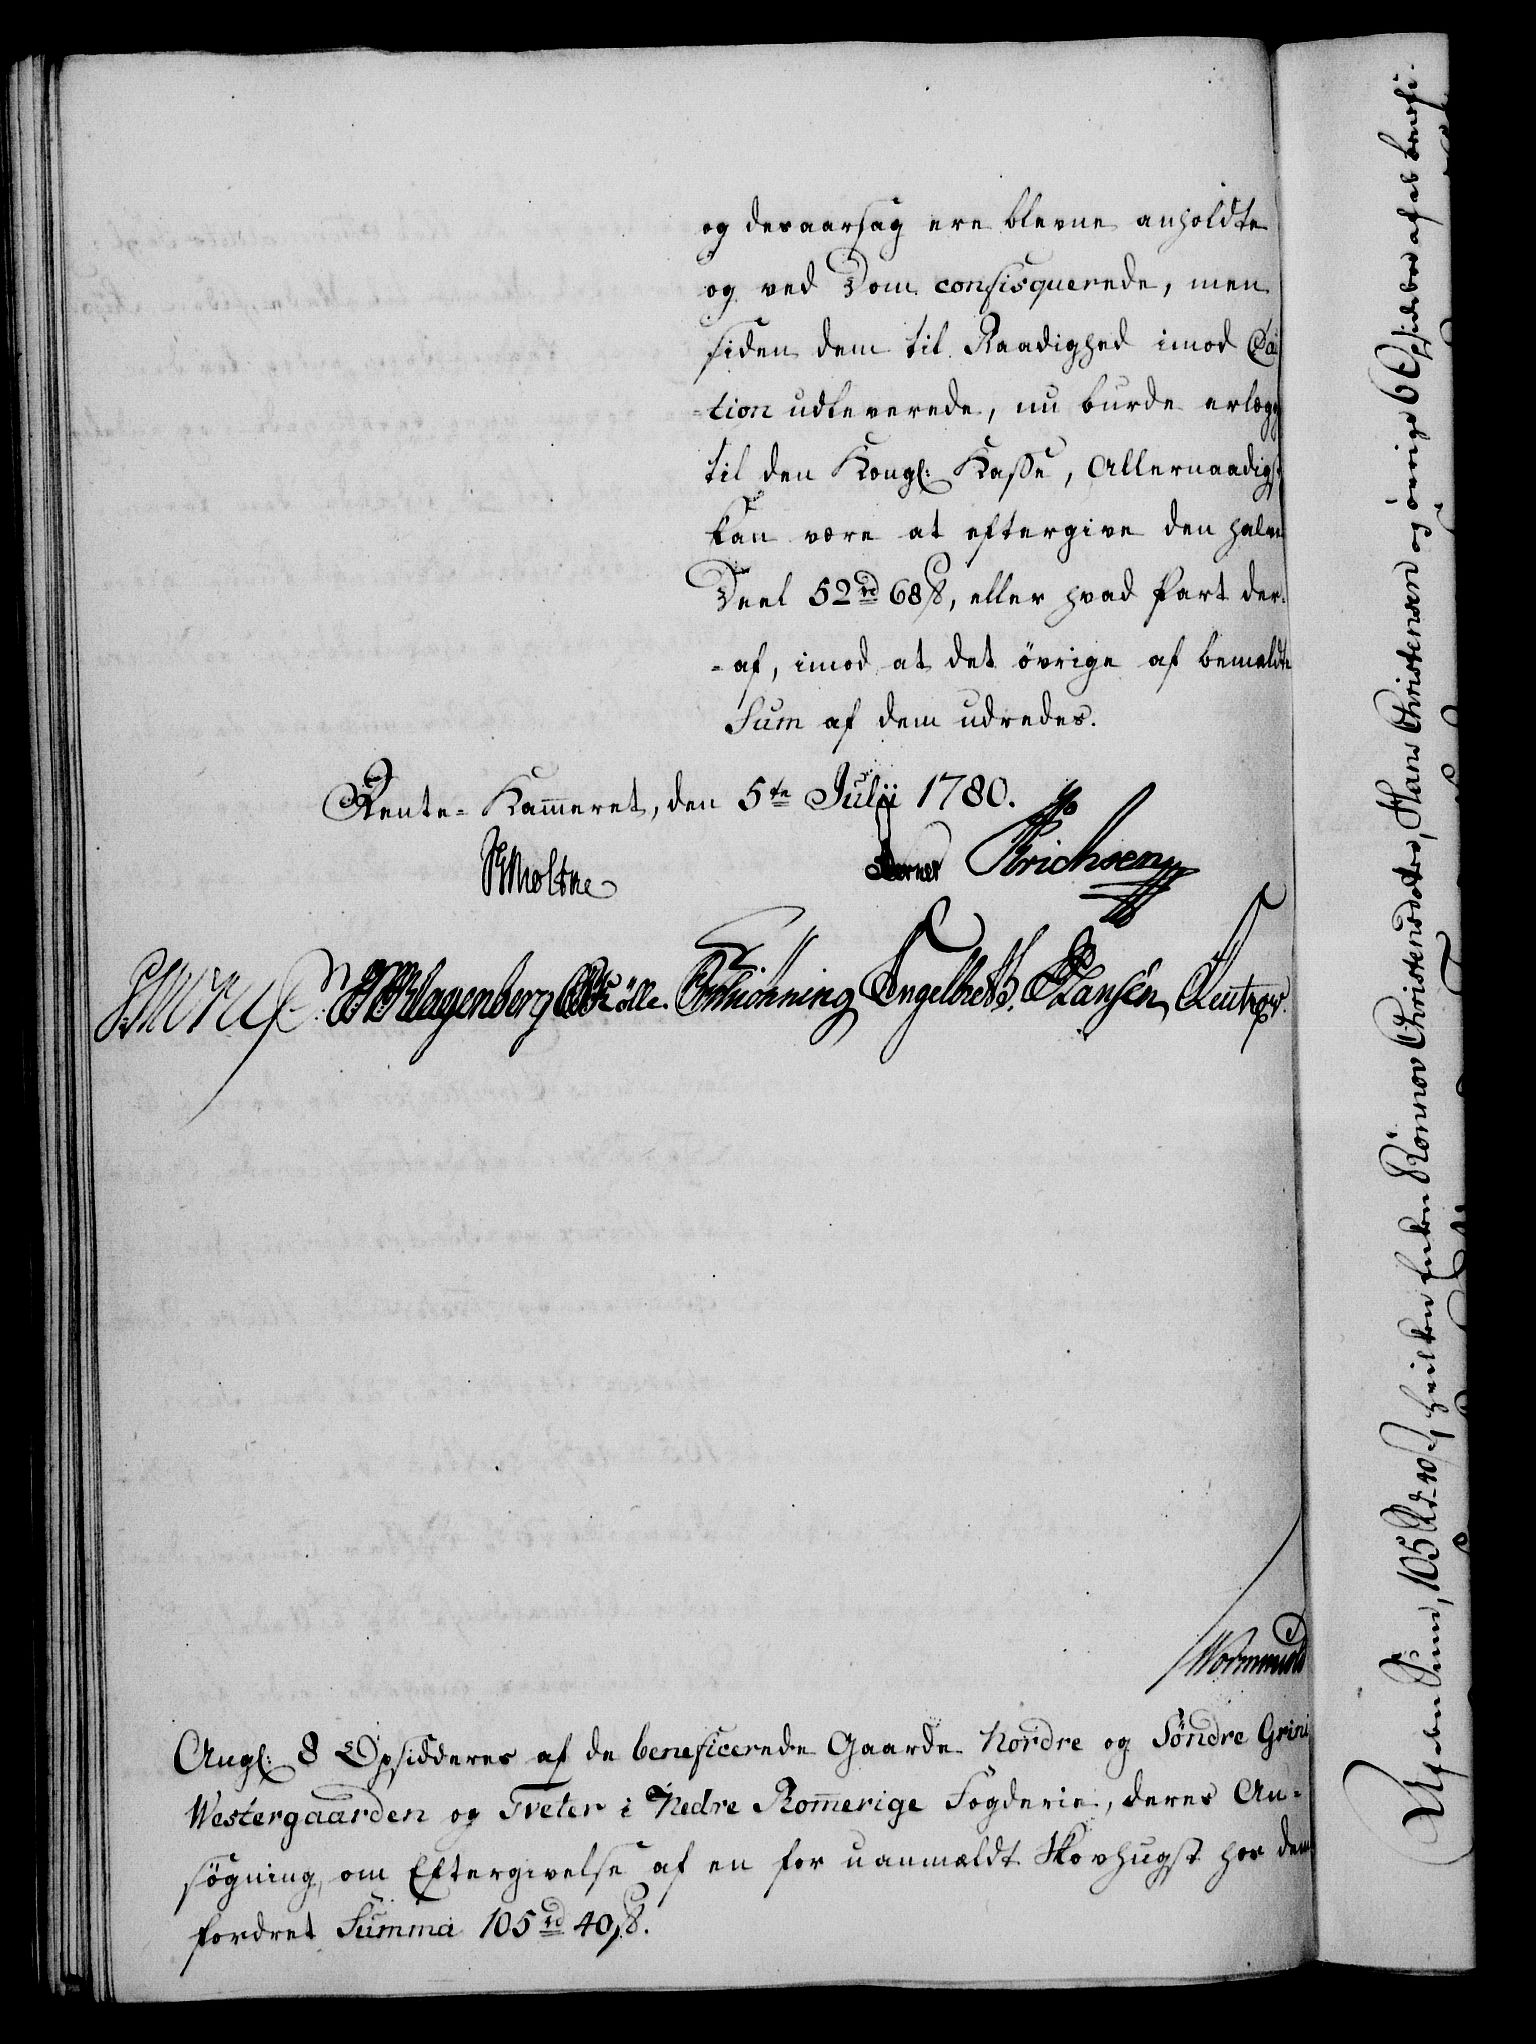 og desaarsag ere blevne anholdte
og ved Dom confisquerede, men
siden dem til Raadighed imod Cau
tion udleverede, nu burde erlægg
til den Kongl: Kasse, Allernaadigst
kan være at eftergive den halve
Deel 52 rd 68 ß, eller hvad Part der-
-af, imod at det övrige af bemeldte
Sum af dem udredes.
Rente-Kammeret, den 5te Julii 1780.
Moltke Berner Erichsen
Klagenberg Kölle Schiönning Engelbrett Hansen Reutzov
Wormvold
Angl: 8 Opsidderes af de beneficerede Gaarde Nordre og Söndre Grini
Westergaarden og Tveter i Nedre Romerige Fögderie, deres An-
sögning, om Eftergivelse af en for uanmeldt Skovhugst hos dem
fordret Summa 105 rd 40 ß.
Sum, 105 Rd. 40 ß, hvilken Enken Rönnov Christensdatter, Hans Christensen og övrige 6 Opsiddere af de benefi-